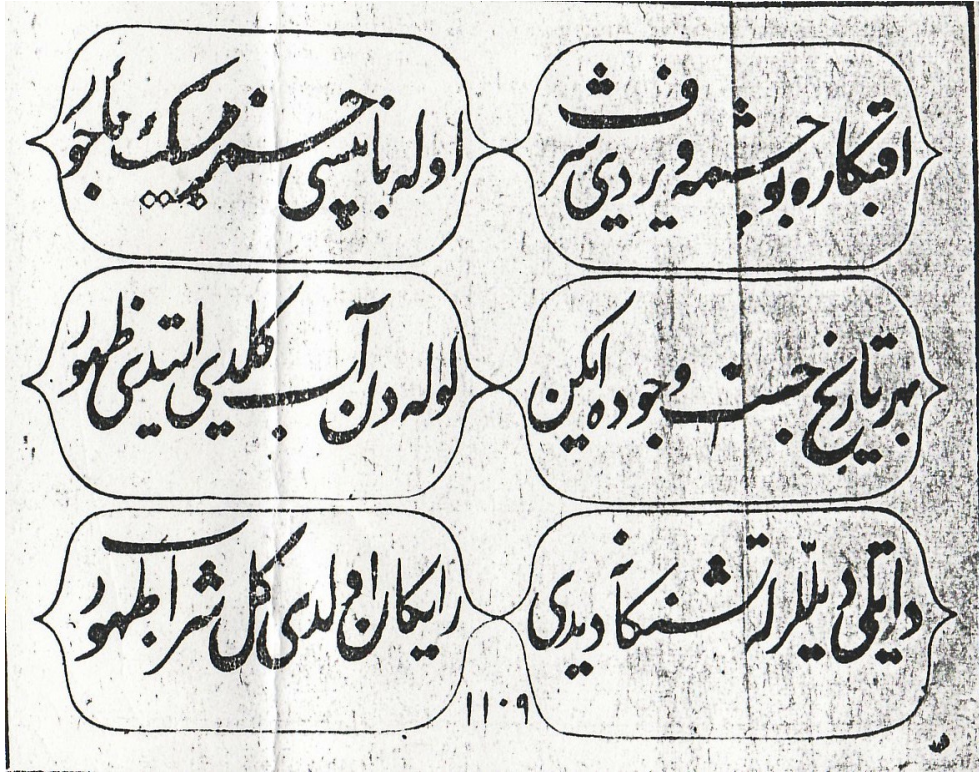 افتكاره بو چشمه ویردی شرف
اوله بانیسی مأجور
بهر تاریخ جست وجوده ایكن
لوله دن آب كلدی ایتدی ظهور
داتلی دیللرله تشنكان دیدی
رایكان اولدی كل شراب طهور
١١٠٩